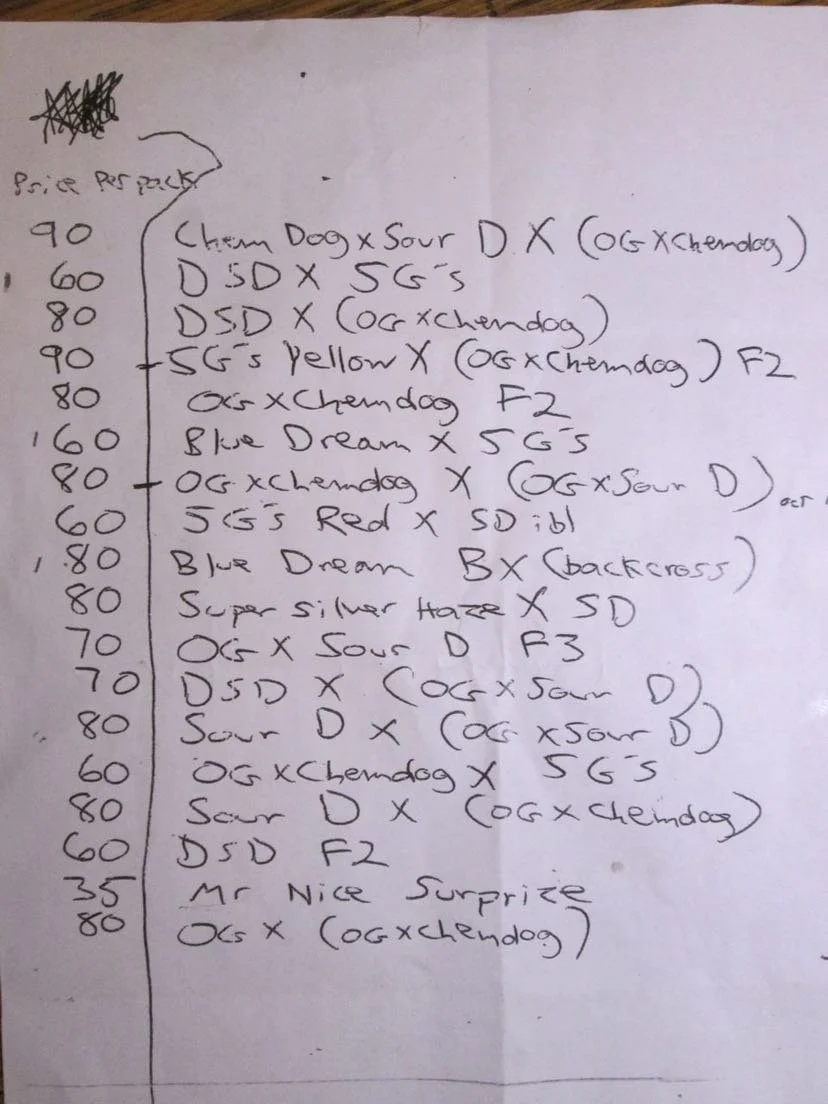 Price Per pack
90 Chem Dog x Sour D X (OG X Chemdog)
60 DSD X 5G's
80 DSD X (OG x Chemdog)
90 - 5G's Yellow X (OG x Chemdog) F2
80 OG x Chemdog F2
60 Blue Dream X 5G's
80 - OG x Chemdog X (OG x Sour D)
60 5G's Red X SD ibl
80 Blue Dream BX (backcross)
80 Super Silver Haze X SD
70 OG X Sour D F3
70 DSD X (OG x Sour D)
80 Sour D X (OG x Sour D)
60 OG x Chemdog X 5G's
80 Sour D X (OG x Chemdog)
60 DSD F2
35 Mr Nice Surprize
80 OG X (OG x Chemdog)